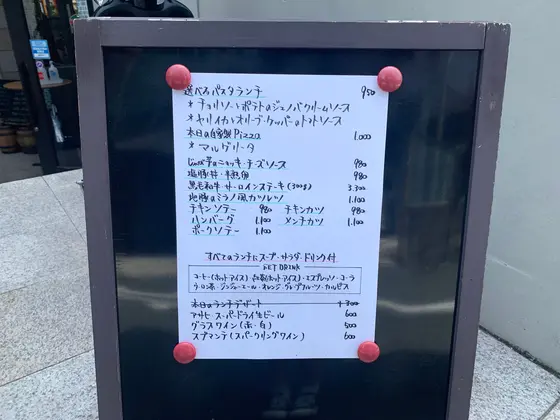 選べるパスタランチ 950
* チョリソーとポテトのジェノバクリームソース
* ヤリイカとオリーブ・ケッパーのトマトソース
本日の自家製Pizza 1.000
* マルゲリータ
じゃが芋のニョッキ・チーズソース 980
塩豚丼・半熟卵 980
黒毛和牛サーロインステーキ(300g) 3.300
地豚のミラノ風カツレツ 1.100
チキンソテー 980 チキンカツ 980
ハンバーグ 1.100 メンチカツ 1.100
ポークソテー 1.100
すべてのランチにスープ・サラダ・ドリンク付
SET DRINK
コーヒー(ホット アイス)・紅茶(ホット アイス)・エスプレッソ・コーラ
ウーロン茶・ジンジャーエール・オレンジ・グレープフルーツ・カルピス
本日のランチデザート +300
アサヒスーパードライ生ビール 600
グラスワイン(赤・白) 500
スプマンテ(スパークリングワイン) 600